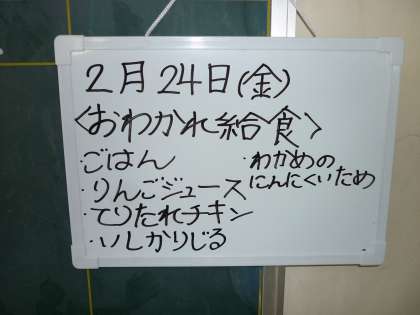 2月24日(金)
<おわかれ給食>
・ごはん
・りんごジュース
・てりたれチキン
・いしかりじる
・わかめの
にんにくいため